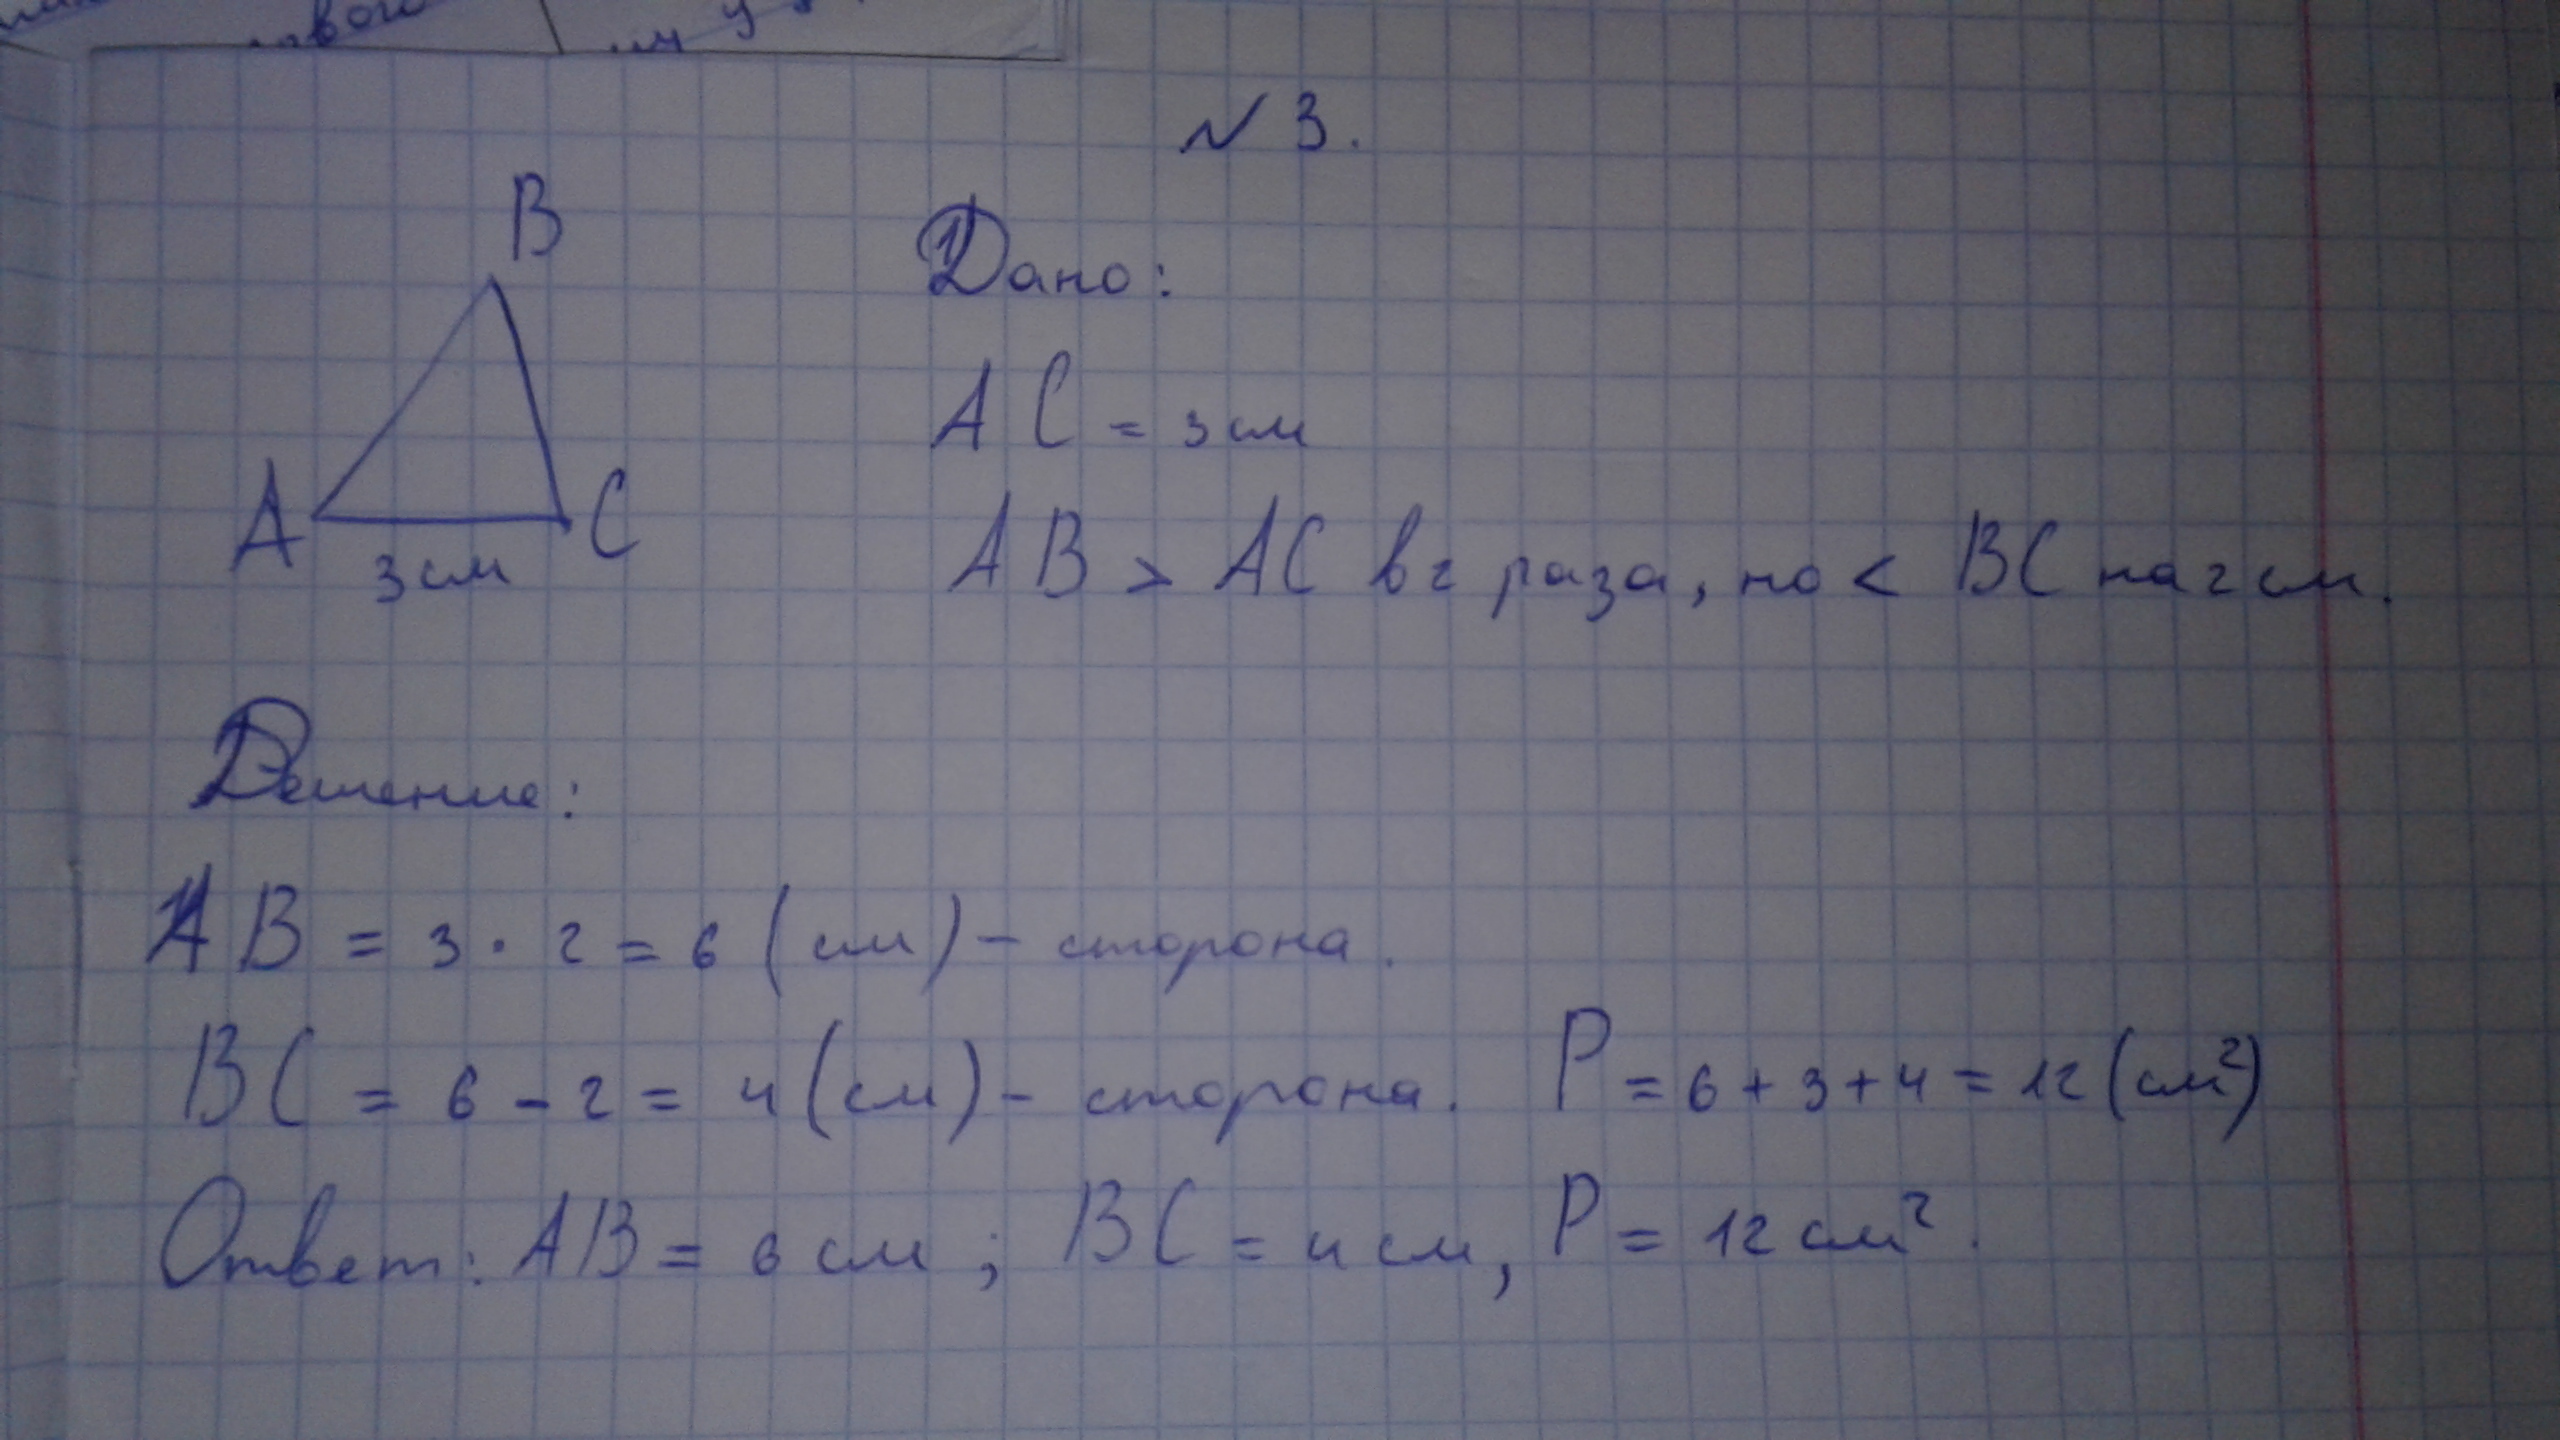 № 3.
B
Дано:
AC = 3 см
A
C
3 см
AB > AC в 2 раза, но < BC на 2 см.
Решение:
AB = 3 · 2 = 6 (см) - сторона.
BC = 6 - 2 = 4 (см) - сторона. P = 6 + 3 + 4 = 12 (см²)
Ответ: AB = 6 см ; BC = 4 см, P = 12 см².